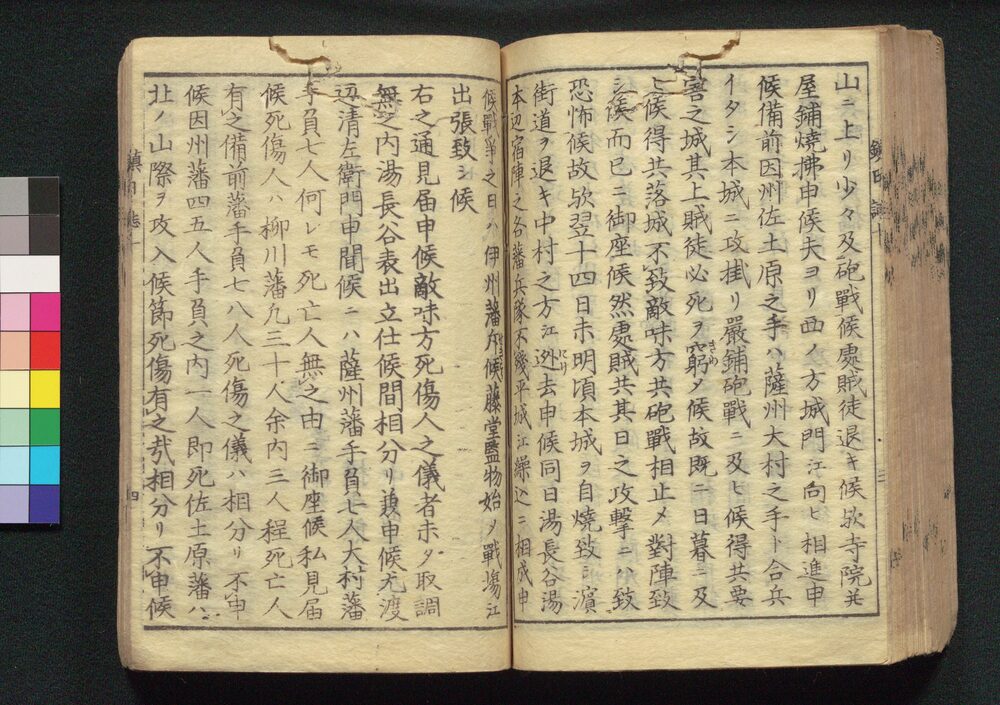 山ニ上リ少々及砲戰候處賊徒退キ候欤寺院并
屋鋪燒拂申候夫ヨリ西ノ方城門江向ヒ相進申
候備前因州佐土原之手ハ薩州大村之手ト合兵
イタシ本城ニ攻掛リ嚴鋪砲戰ニ及ヒ候得共要
害之城其上賊徒必死ヲ窮メ候故既ニ日暮ニ及
ヒ候得共落城不致敵味方共砲戰相止メ對陣致
シ候而已ニ御座候然處賊共其日之攻擊ニハ致
恐怖候故欤翌十四日未明頃本城ヲ自燒致シ濱
街道ヲ退キ中村之方江迯去申候同日湯長谷湯
本辺宿陣之各藩兵隊不殘平城江繰込ニ相成申
候戰爭之日ハ伊州藩斥候藤堂監物始メ戰場江
出張致シ候
右之通見届申候敵味方死傷人之儀者未タ取調
無之内湯長谷表出立仕候間相分リ兼申候尤渡
辺清左衛門申聞候ニハ薩州藩手負七人大村藩
手負七人何レモ死亡人無之由ニ御座候私見届
候死傷人ハ柳川藩凡三十人余内三人程死亡人
有之備前藩手負七八人死傷之儀ハ相分リ不申
候因州藩四五人手負之内一人即死佐土原藩ハ
北ノ山際ヲ攻入候節死傷有之哉相分リ不申候
鎮
四